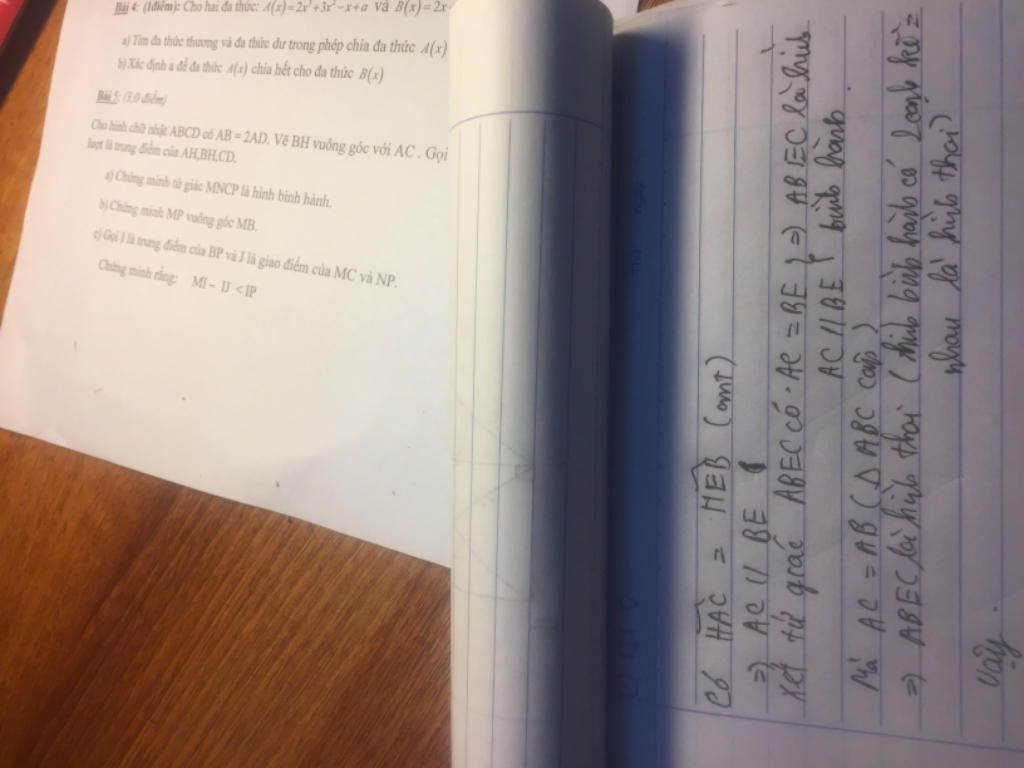 Bài 4: (1điểm): Cho hai đa thức: A(x)=2x³+3x²-x+a và B(x)=2x
a) Tìm đa thức thương và đa thức dư trong phép chia đa thức A(x)
b) Xác định a để đa thức A(x) chia hết cho đa thức B(x)
Bài 5: (3,0 điểm)
Cho hình chữ nhật ABCD có AB = 2AD. Vẽ BH vuông góc với AC . Gọi
lượt là trung điểm của AH,BH,CD.
a) Chứng minh tứ giác MNCP là hình bình hành.
b) Chứng minh MP vuông góc MB.
c) Gọi I là trung điểm của BP và J là giao điểm của MC và NP.
Chứng minh rằng: MI - IJ < IP
Có HAC = MEB (cmt)
=> AC // BE
Xét tứ giác ABEC có · AC = BE } => ABEC là hình
AC // BE bình hành
Mà AC = AB (△ ABC cân)
=> ABEC là hình thoi ( hình bình hành có 2 cạnh kề =
nhau là hình thoi)
Vậy .